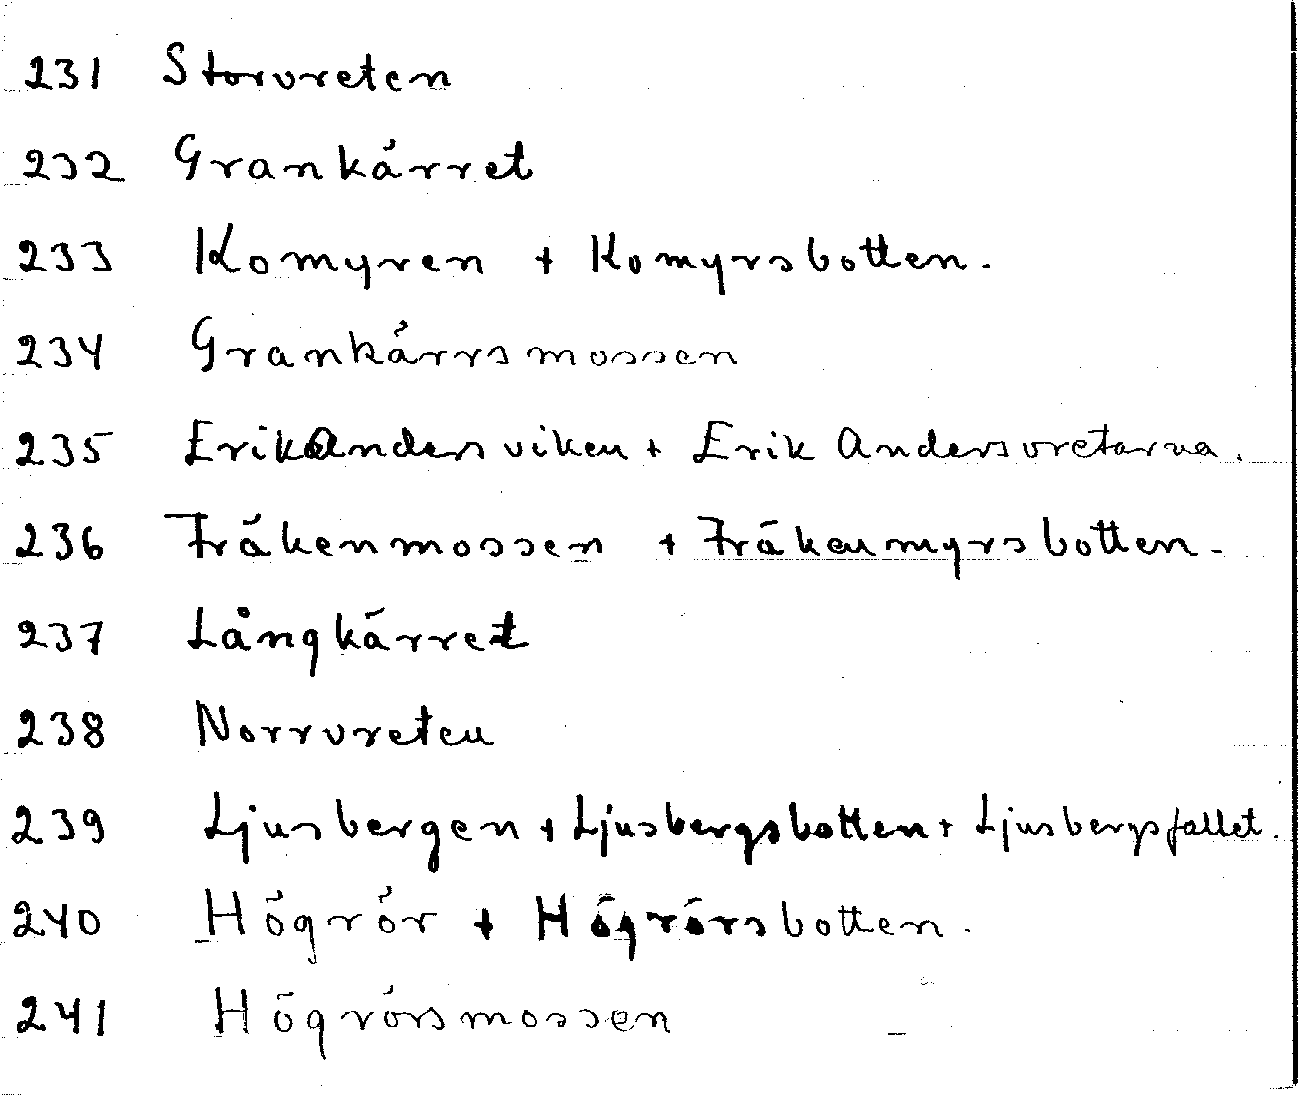 231 Storvreten
232 Grankärret
233 Komyren + Komyrsbotten.
234 Grankärrsmossen
235 Erik Andersviken + Erik Andersvretarna.
236 Fräkenmossen + Fräkenmyrsbotten.
237 Långkärret
238 Norrvreten
239 Ljusbergen + Ljusbergsbotten + Ljusbergsfallet.
240 Högrör + Högrörsbotten.
241 Högrörsmossen